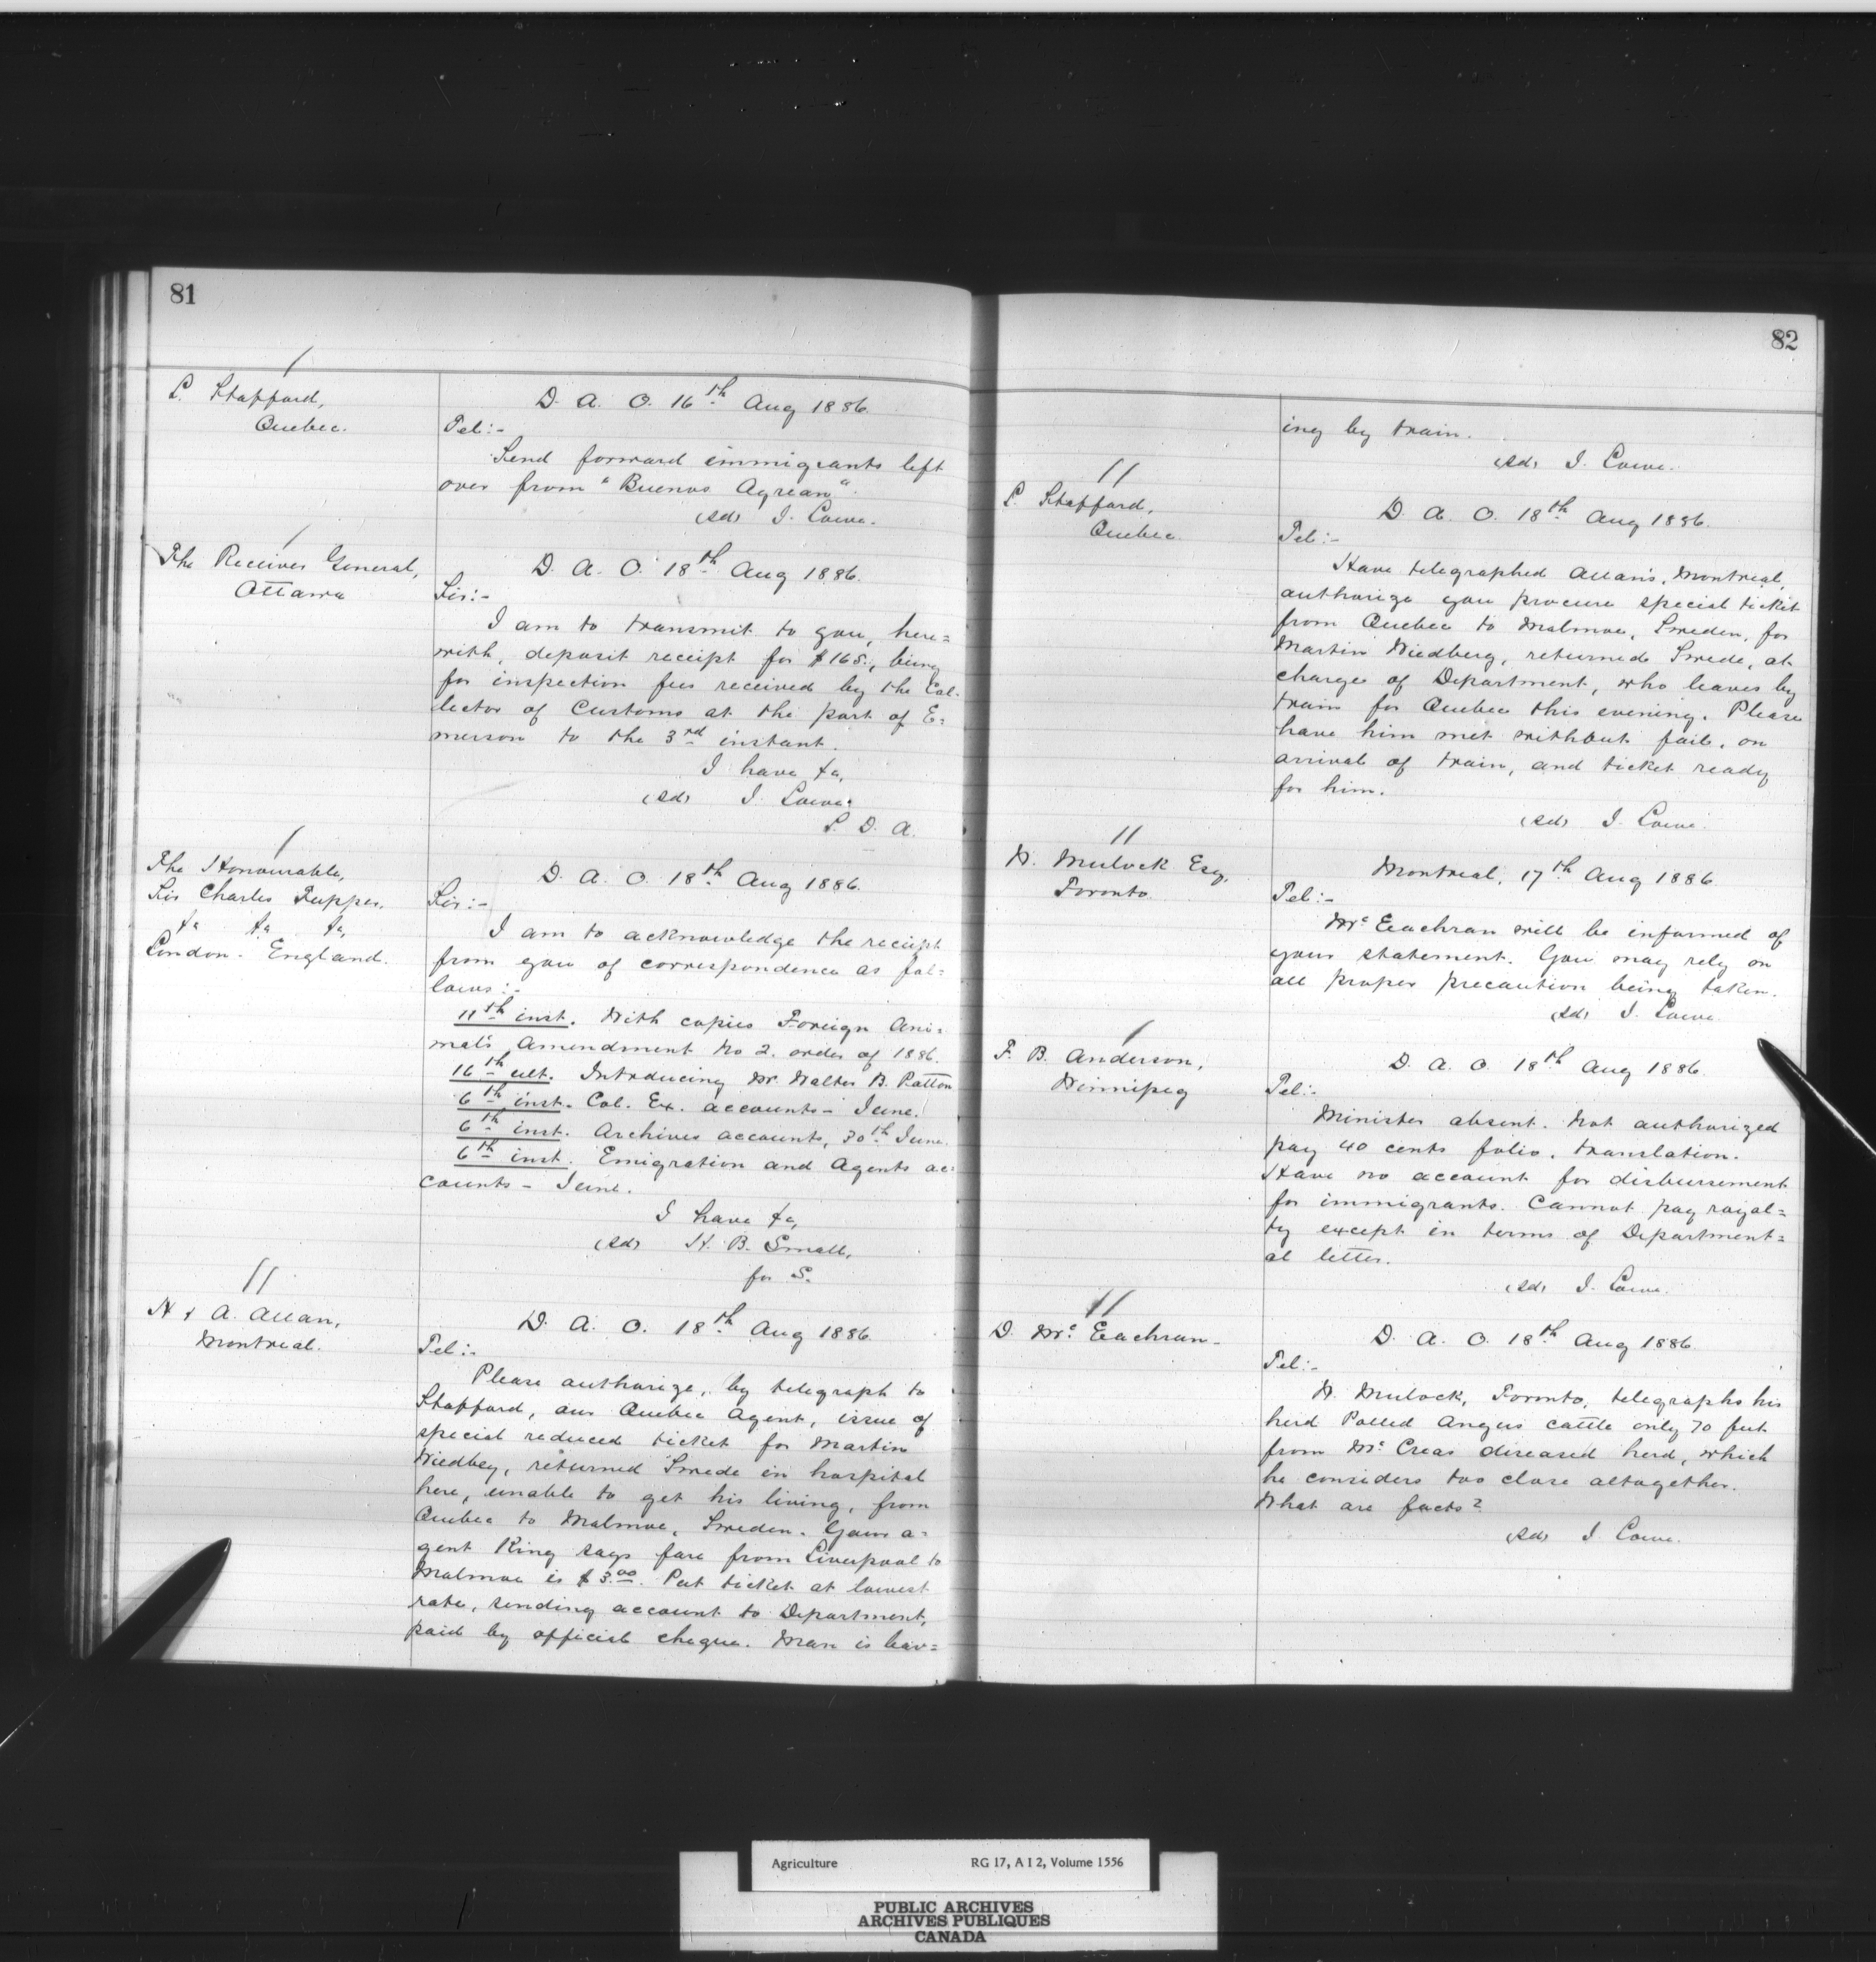 81
L. Stafford,
Quebec.
D. A. O. 16th Aug 1886.
Tel:-
Send forward immigrants left
over from "Buenos Ayrean".
(sd) J. Lowe.
The Receiver General,
Ottawa
D. A. O. 18th Aug 1886.
Sir:-
I am to transmit to you, here=
with, deposit receipt for $165., being
for inspection fees received by the Col-
lector of Customs at the port of E=
merson to the 3rd instant.
I have &c,
(sd) J. Lowe.
S. D. A.
The Honourable,
Sir Charles Tupper,
&c &c &c,
London. England.
D. A. O. 18th Aug 1886.
Sir:-
I am to acknowledge the receipt
from you of correspondence as fol=
lows:-
11th inst. With copies Foreign Ani=
mals Amendment No 2. order of 1886.
16th ult. Introducing Mr. Walter B. Patton
6th inst. Col. Ex. accounts - June.
6th inst. Archives accounts, 30th June.
6th inst. Emigration and Agents ac=
counts - June.
I have &c,
(sd) H. B. Small,
for S.
H & A. Allan,
Montreal.
D. A. O. 18th Aug 1886.
Tel:-
Please authorize, by telegraph to
Stafford, our Quebec Agent, issue of
special reduced ticket for Martin
Wiedbey, returned Swede in hospital
here, unable to get his living, from
Quebec to Malmoe, Sweden. Your a=
gent King says fare from Liverpool to
Malmoe is $3.00. Put ticket at lowest
rate, sending account to Department,
paid by official cheque. Man is leav=
82
ing by train.
(sd) J. Lowe.
L. Stafford,
Quebec.
D. A. O. 18th Aug 1886.
Tel:-
Have telegraphed Allans, Montreal,
authorize you procure special ticket
from Quebec to Malmoe, Sweden, for
Martin Wiedberg, returned Swede, at
charge of Department, who leaves by
train for Quebec this evening. Please
have him met without fail, on
arrival of train, and ticket ready
for him.
(sd) J. Lowe.
W. Mulock Esq,
Toronto.
Montreal, 17th Aug 1886.
Tel:-
Mc Eachran will be informed of
your statement. You may rely on
all proper precaution being taken.
(sd) J. Lowe.
F. B. Anderson,
Winnipeg
D. A. O. 18th Aug 1886.
Tel:-
Minister absent. Not authorized
pay 40 cents folio, translation.
Have no account for disbursement
for immigrants. Cannot pay royal=
ty except in terms of Department=
al letter.
(sd) J. Lowe.
D. Mc Eachran.
D. A. O. 18th Aug 1886.
Tel:-
W. Mulock, Toronto, telegraphs his
herd Polled Angus cattle only 70 feet
from Mc Creas diseased herd, which
he considers too close altogether.
What are facts?
(sd) J. Lowe.
Agriculture RG 17, A I 2, Volume 1556
PUBLIC ARCHIVES
ARCHIVES PUBLIQUES
CANADA